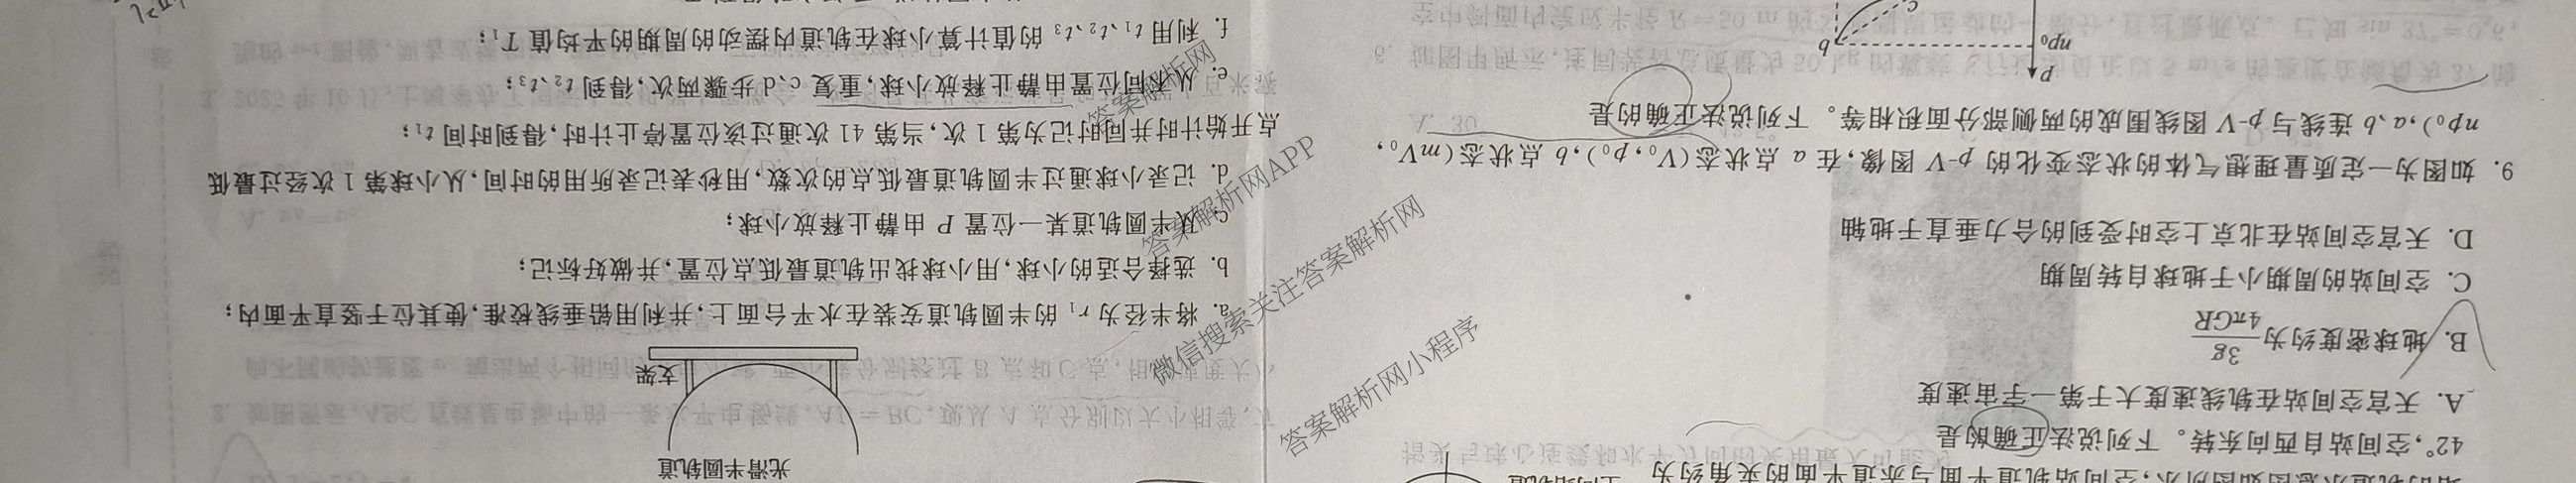 42°,空间站自西向东转。下列说法正确的是
A. 天宫空间站在轨线速度大于第一宇宙速度
B. 地球密度约为3g/4πGR
C. 空间站的周期小于地球自转周期
D. 天宫空间站在北京上空时受到的合力垂直于地轴
9. 如图为一定质量理想气体的状态变化的 p-V 图像,在 a 点状态(V₀,p₀),b 点状态(mV₀,
np₀),a、b 连线与 p-V 图线围成的两侧部分面积相等。下列说法正确的是
p
np₀
b
c
光滑半圆轨道
支架
a. 将半径为 r₁ 的半圆轨道安装在水平台面上,并利用铅垂线校准,使其位于竖直平面内;
b. 选择合适的小球,用小球找出轨道最低点位置,并做好标记;
c. 从半圆轨道某一位置 P 由静止释放小球;
d. 记录小球通过半圆轨道最低点的次数,用秒表记录所用的时间,从小球第 1 次经过最低
点开始计时并同时记为第 1 次,当第 41 次通过该位置停止计时,得到时间 t₁;
e. 从不同位置由静止释放小球,重复 c、d 步骤两次,得到 t₂、t₃;
f. 利用 t₁、t₂、t₃ 的值计算小球在轨道内摆动的周期的平均值 T₁;
答案解析网
答案解析网APP
微信搜索关注答案解析网
答案解析网小程序